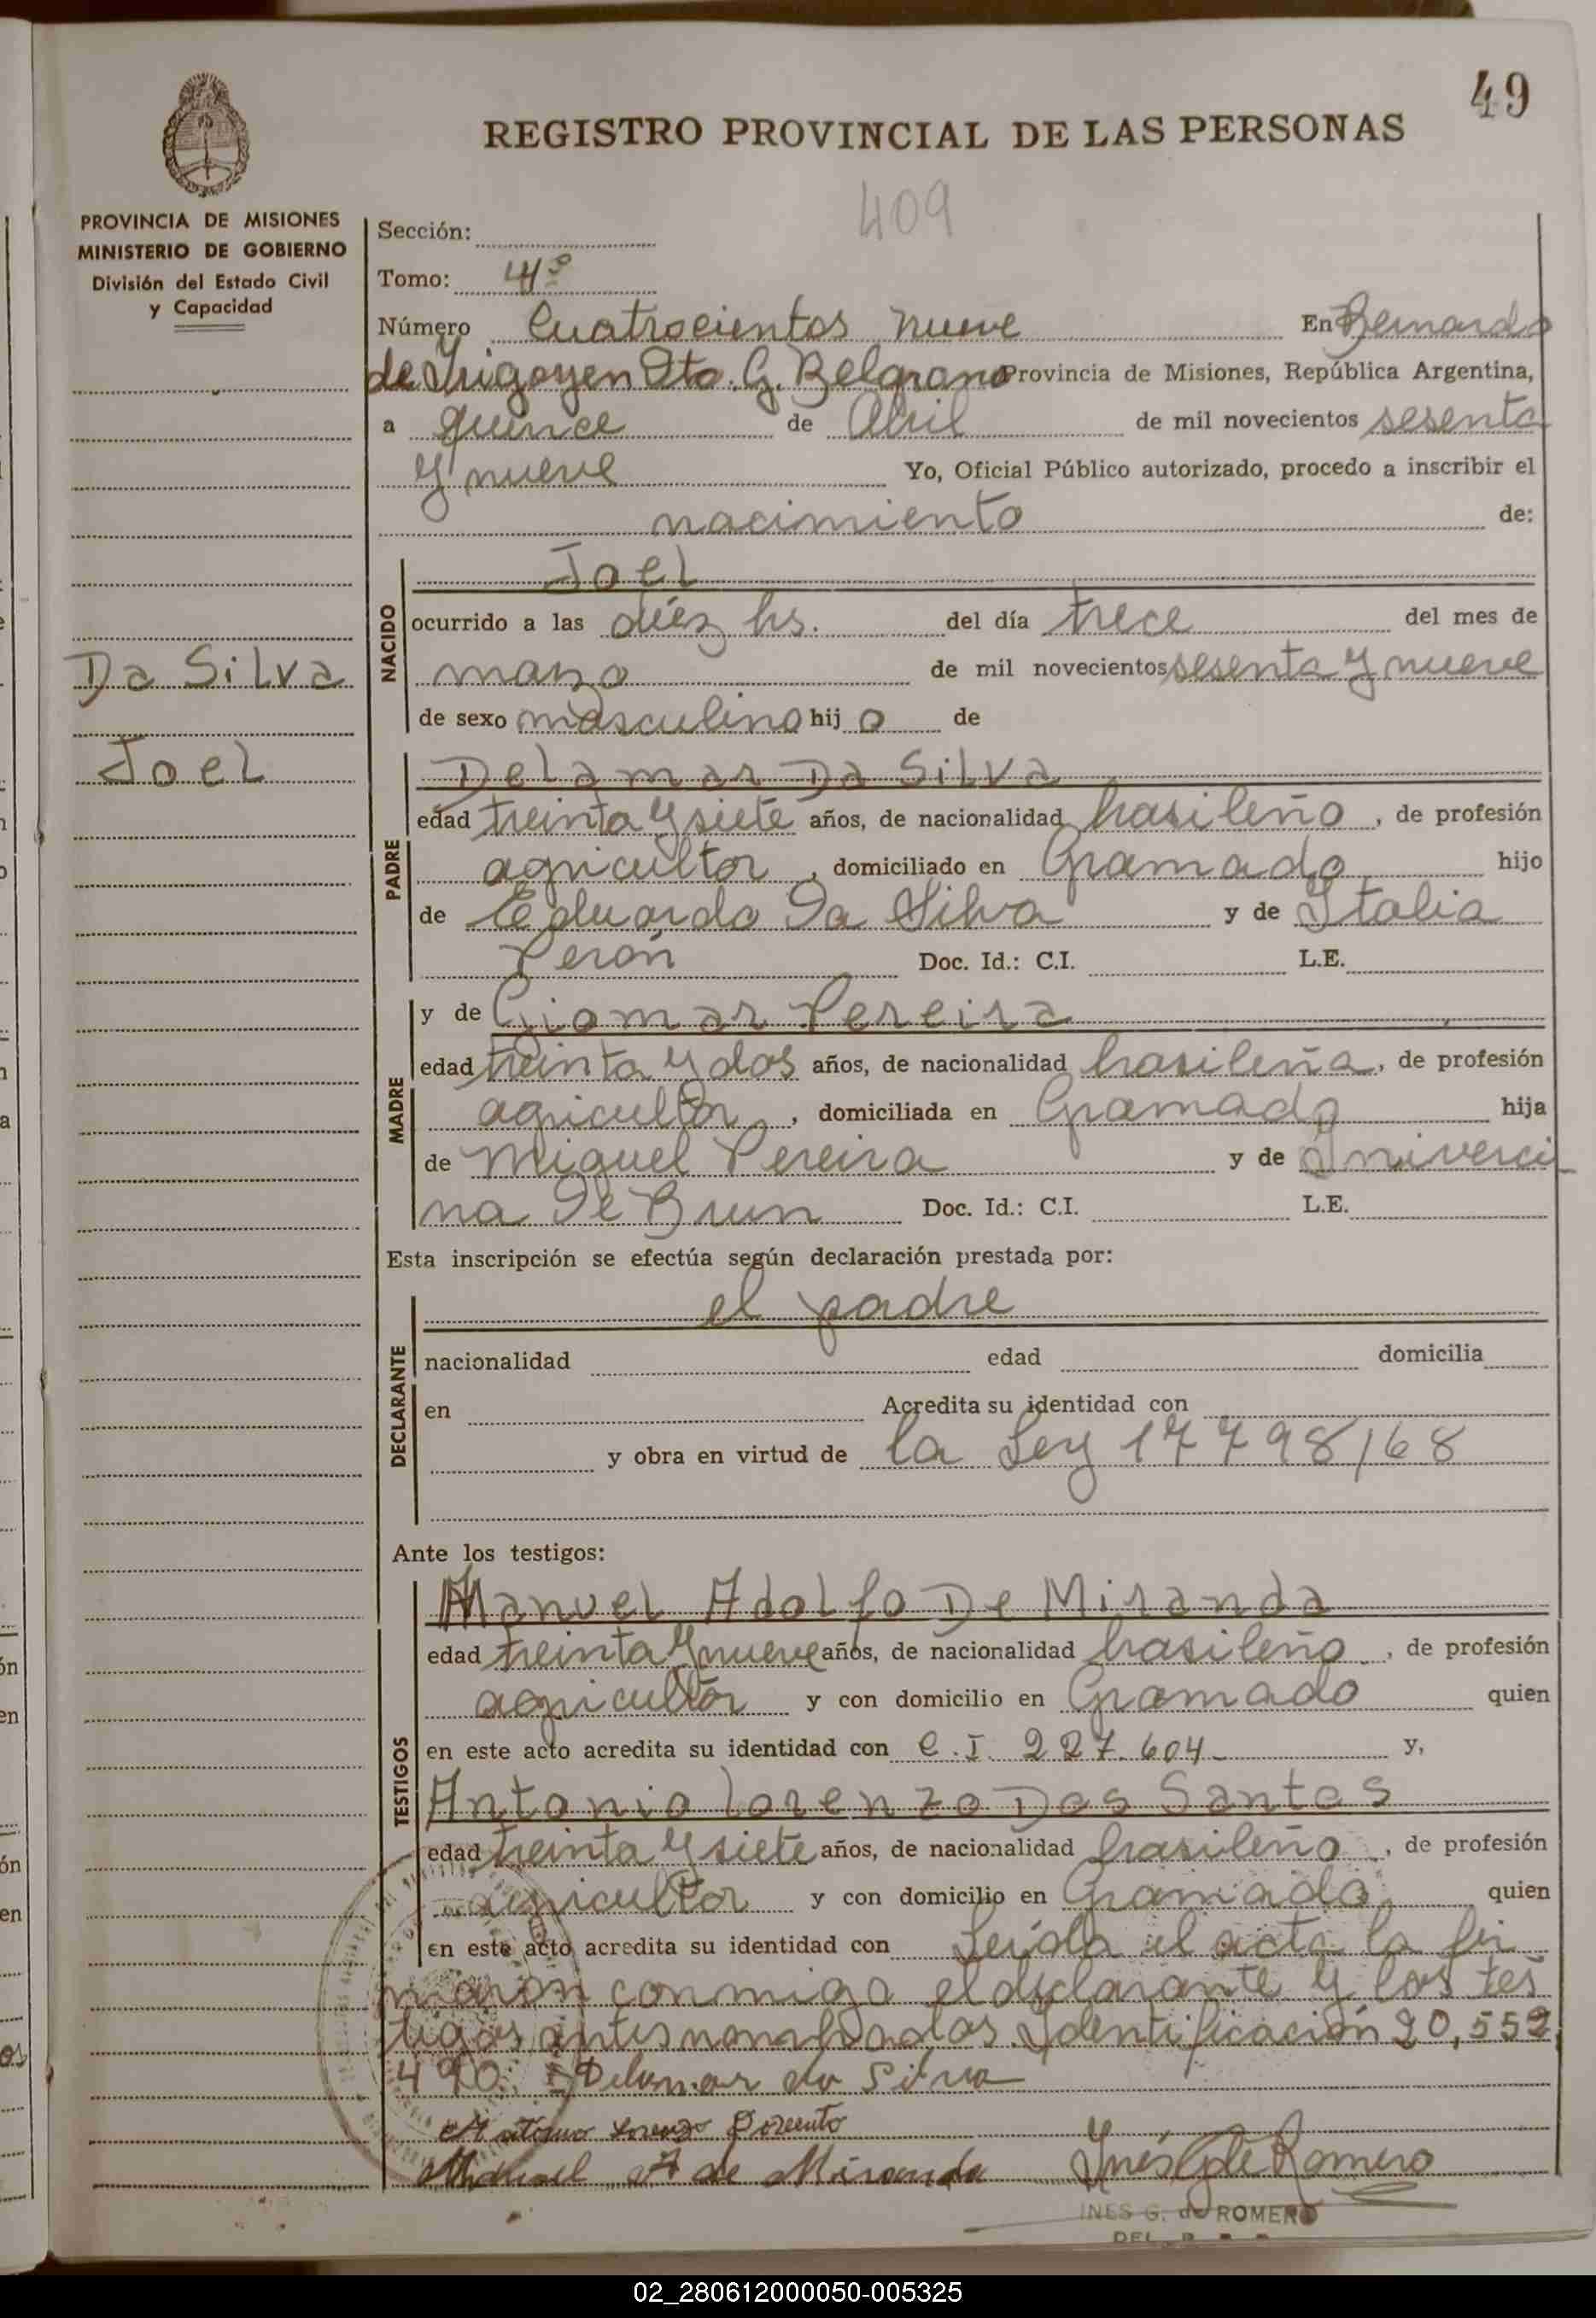 49
REGISTRO PROVINCIAL DE LAS PERSONAS
409
PROVINCIA DE MISIONES
MINISTERIO DE GOBIERNO
División del Estado Civil
y Capacidad
Sección:
Tomo: 4º
Número Cuatrocientos nueve En Bernardo
de Irigoyen Dto. G. Belgrano Provincia de Misiones, República Argentina,
a quince de Abril de mil novecientos sesenta
y nueve Yo, Oficial Público autorizado, procedo a inscribir el
nacimiento de:
NACIDO
Joel
ocurrido a las diéz hs. del día trece del mes de
Da Silva
marzo de mil novecientos sesenta y nueve
de sexo masculino hij o de
Joel
PADRE
Delamar Da Silva
edad treinta y siete años, de nacionalidad brasileño, de profesión
agricultor, domiciliado en Gramado hijo
de Eduardo Da Silva y de Italia
Perón Doc. Id.: C.I. L.E.
MADRE
y de Giomar Pereira
edad treinta y dos años, de nacionalidad brasileña, de profesión
agricultor, domiciliada en Gramado hija
de Miguel Pereira y de Iniverci
na De Brun Doc. Id.: C.I. L.E.
Esta inscripción se efectúa según declaración prestada por:
DECLARANTE
el padre
nacionalidad edad domicilia
en Acredita su identidad con
y obra en virtud de la Ley 17798/68
Ante los testigos:
TESTIGOS
Manuel Adolfo De Miranda
edad treinta y nueve años, de nacionalidad brasileño, de profesión
agricultor y con domicilio en Gramado quien
en este acto acredita su identidad con C.I. 227.604- y,
Antonio Lorenzo Dos Santos
edad treinta y siete años, de nacionalidad brasileño, de profesión
agricultor y con domicilio en Gramado quien
en este acto acredita su identidad con Leída el acta la fir
maron conmigo el declarante y los tes
tigos antes nombrados. Identificación 20,552
490. Delamar da Silva
Antonio Lorenzo
Manuel A de Miranda Inés G de Romero
INES G. de ROMERO